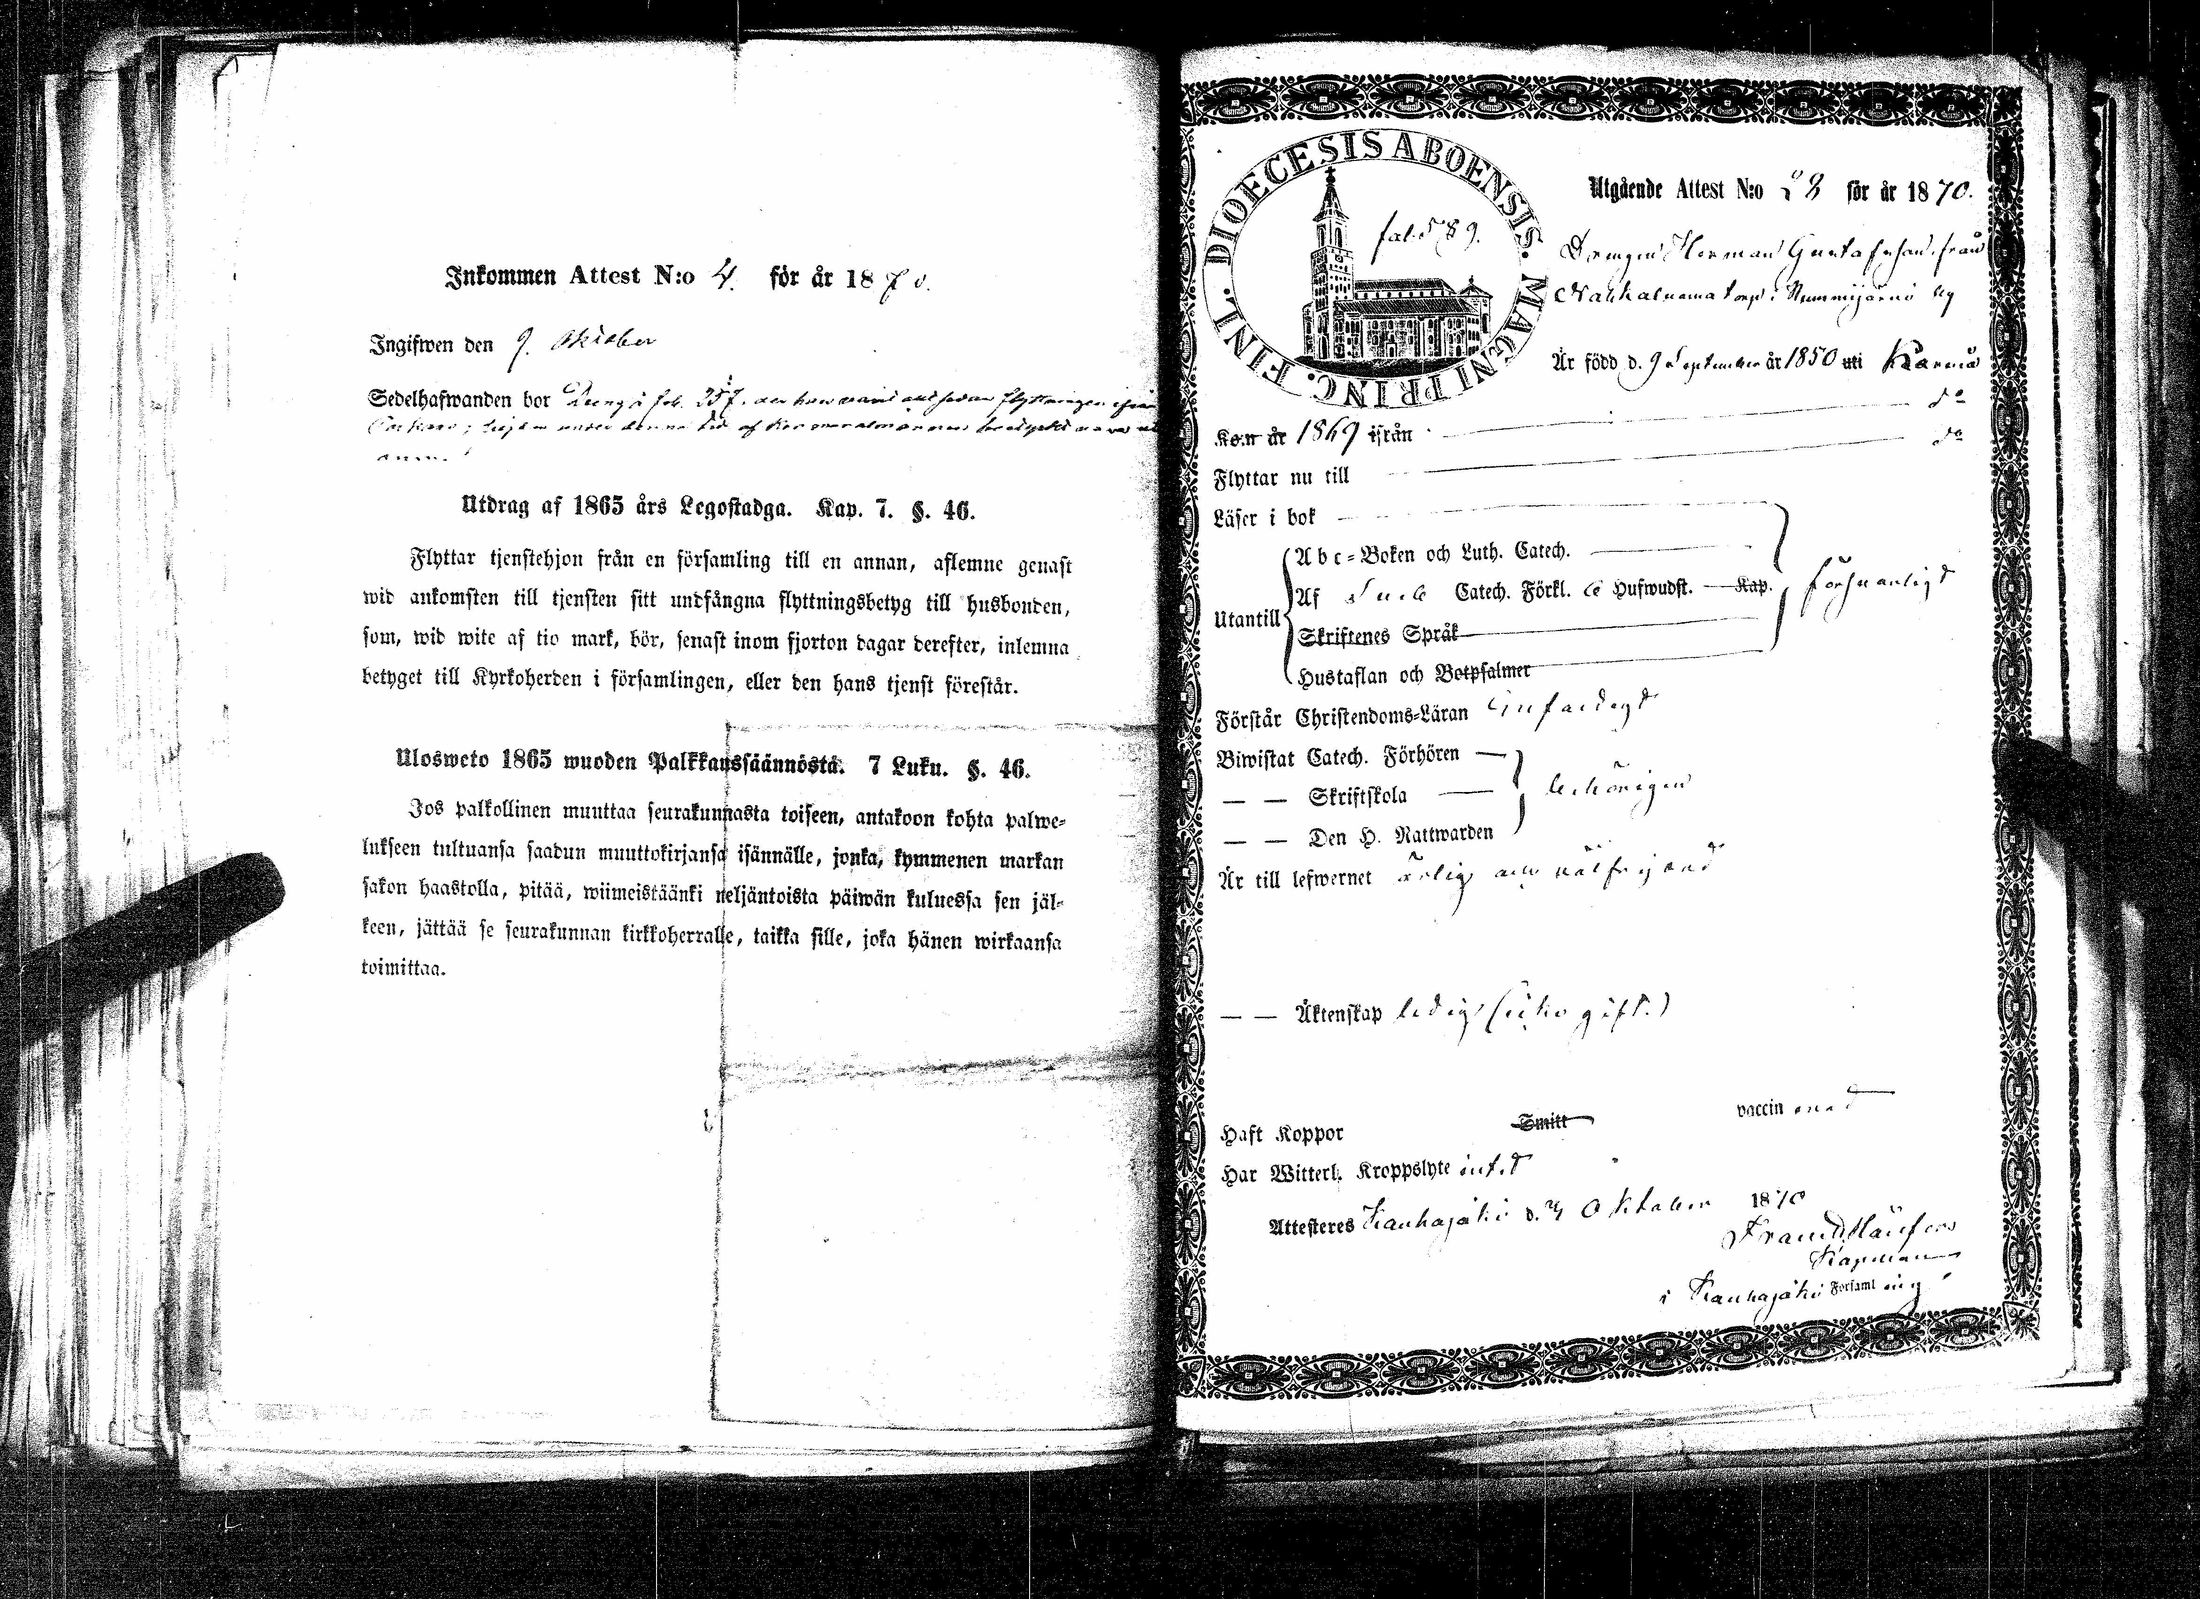 Inkommen Attest N:o 4. för år 1870.
Ingifwen den 9. Oktober
Sedelhafwanden bor fol. 257. flyttningen ifrån
under denna tid af
Utdrag af 1865 års Legostadga. Kap. 7. §. 46.
Flyttar tjenstehjon från en församling till en annan, aflemne genast
wid ankomsten till tjensten sitt undfångna flyttningsbetyg till husbonden,
som, wid wite af tio mark, bör, senast inom fjorton dagar derefter, inlemna
betyget till Kyrkoherden i församlingen, eller den hans tjenst förestår.
Ulosweto 1865 wuoden Palkkaussäännöstä. 7 Luku. §. 46.
Jos palkollinen muuttaa seurakunnasta toiseen, antakoon kohta palwe-
lukseen tultuansa saadun muuttokirjansa isännälle, jonka, kymmenen markan
sakon haastolla, pitää, wiimeistäänki neljäntoista päiwän kuluessa sen jäl-
keen, jättää se seurakunnan kirkkoherralle, taikka sille, joka hänen wirkaansa
toimittaa.
DIOECESIS ABOENSIS. MAGNI PRINC. FINL.
fol. 589.
Utgående Attest N:o 28 för år 1870.
Drengen Herman Gustafsson från
torp i Nummijärvi by
Är född d. 9 September år 1850 uti Karvia
Kom år 1869 ifrån do
Flyttar nu till do
Läser i bok
Utantill
Abc-Boken och Luth. Catech.
Af Catech. Förkl. 6 Hufwudst. Kap.
Skriftenes Språk
Hustaflan och Botpsalmer
försvarligt
Förstår Christendoms-Läran enfaldigt
Biwistat Catech. Förhören
— — Skriftskola behörigen
— — Den H. Nattwarden
Är till lefwernet ärlig och välfrejdad
— — Äktenskap ledig (icke gift.)
Haft Koppor Smitt vaccinerad
Har Witterl. Kroppslyte intet
Attesteres Kauhajoki d. Oktober 1870
Kapellan
i Kauhajoki Församling